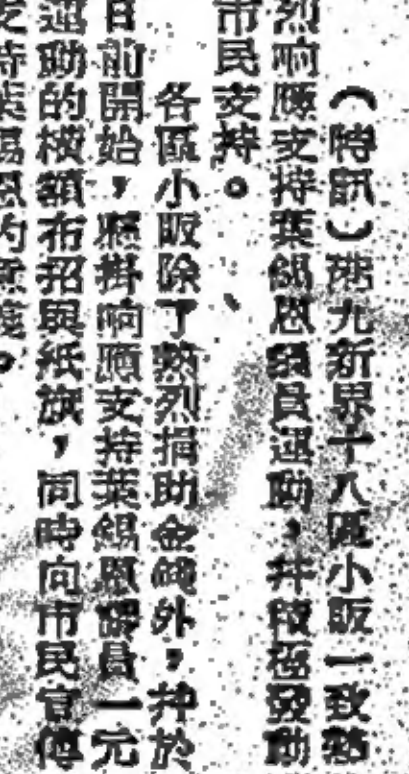 （特訊）港九新界十八區小販一致熱
烈响應支持葉錫恩議員運動，并積極發動
市民支持。
各區小販除了熱烈捐助金錢外，并於
日前開始，懸掛响應支持葉錫恩議員一元
運動的橫額布招與紙旗，同時向市民宣傳
支持葉錫恩的